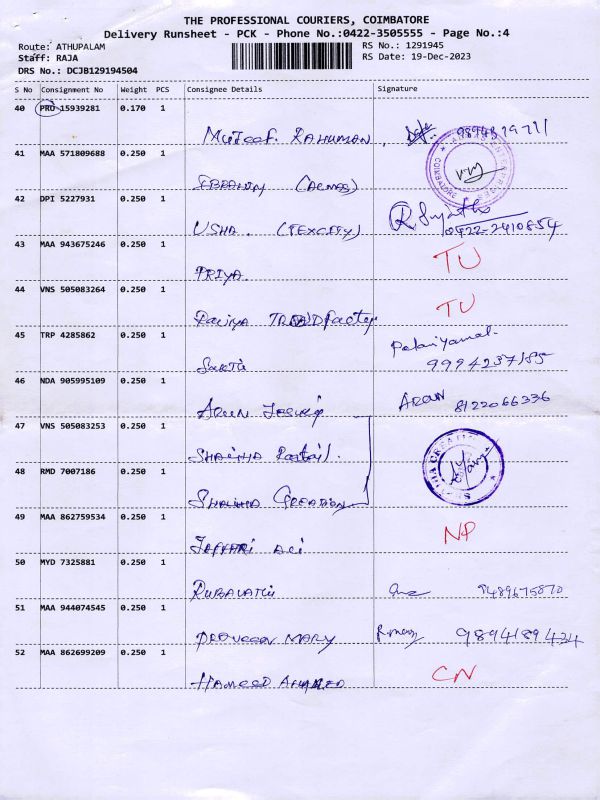 THE PROFESSIONAL COURIERS, COIMBATORE
Delivery Runsheet - PCK - Phone No.:0422-3505555 - Page No.:4
Route: ATHUPALAM RS No.: 1291945
Staff: RAJA RS Date: 19-Dec-2023
DRS No.: DCJB129194504
S No Consignment No Weight PCS Consignee Details Signature
40 PRO 15939281 0.170 1
RAHUMAN
41 MAA 571809688 0.250 1
COIMBATORE
42 DPI 5227931 0.250 1
USHA. (TEXCITY) 0422-2410854
43 MAA 943675246 0.250 1 TU
PRIYA
44 VNS 505083264 0.250 1 TU
45 TRP 4285862 0.250 1
9994237185
46 NDA 905995109 0.250 1 ARUN 8122066336
ARUN
47 VNS 505083253 0.250 1
48 RMD 7007186 0.250 1
CREATION
49 MAA 862759534 0.250 1 NP
50 MYD 7325881 0.250 1
9489675870
51 MAA 944074545 0.250 1
MARY 9894189424
52 MAA 862699209 0.250 1 CN
HAMEED AHAMED